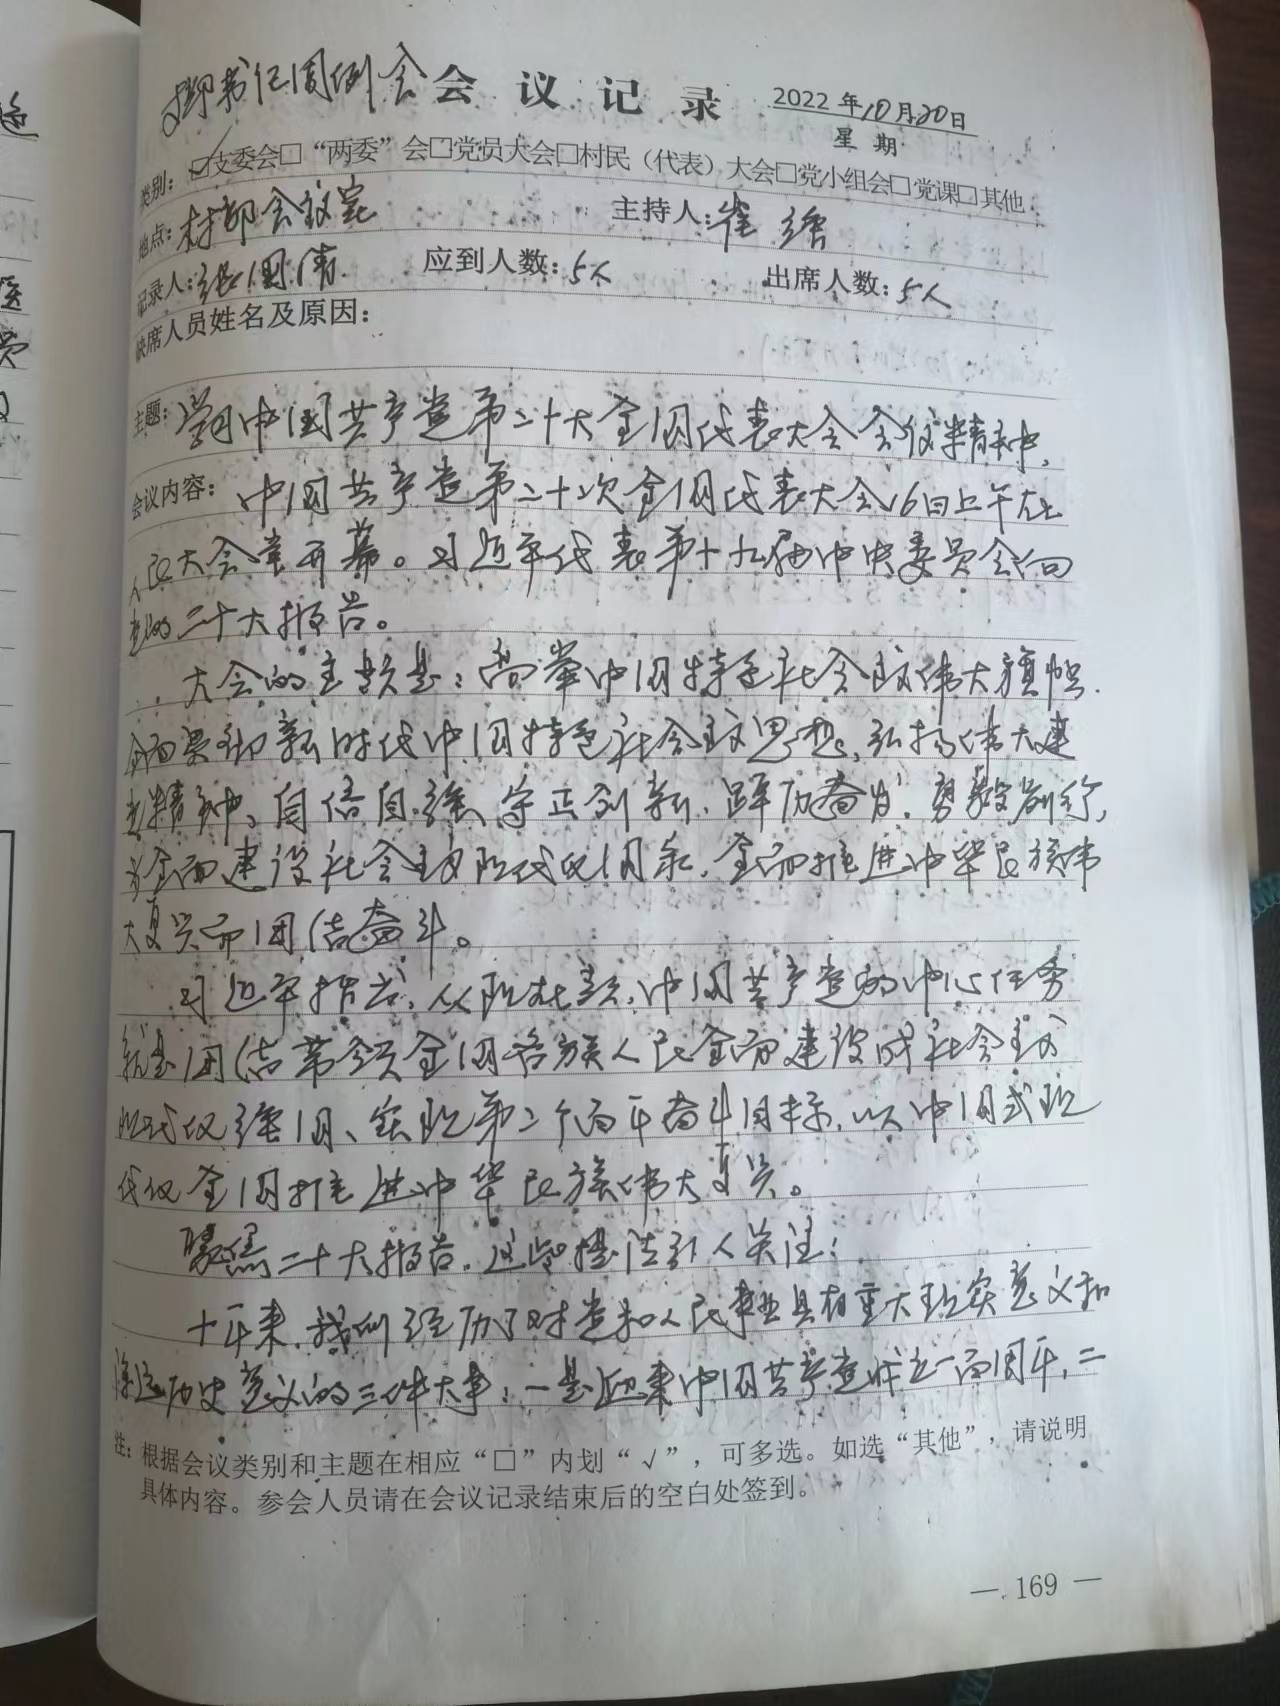 书记周例会会议记录 2022年10月20日
星期
类别：☑支委会□“两委”会□党员大会□村民（代表）大会□党小组会□党课□其他
地点：村部会议室 主持人：崔
记录人：张国清 应到人数：5人 出席人数：5人
缺席人员姓名及原因：
主题：学习中国共产党第二十大全国代表大会会议精神，
会议内容：中国共产党第二十次全国代表大会16日上午在
人民大会堂开幕。习近平代表第十九届中央委员会向
党的二十大报告。
大会的主题是：高举中国特色社会主义伟大旗帜，
全面贯彻新时代中国特色社会主义思想，弘扬伟大建
党精神，自信自强、守正创新，踔厉奋发，勇毅前行，
为全面建设社会主义现代化国家，全面推进中华民族伟
大复兴而团结奋斗。
习近平指出，从现在起，中国共产党的中心任务
就是团结带领全国各族人民全面建设成社会主义
现代化强国、实现第二个百年奋斗目标，以中国式现
代化全国推进中华民族伟大复兴。
聚焦二十大报告，这些提法引人关注：
十年来，我们经历了对党和人民事业具有重大现实意义和
深远历史意义的三件大事：一是迎来中国共产党成立一百周年，二
注：根据会议类别和主题在相应“□”内划“√”，可多选。如选“其他”，请说明
具体内容。参会人员请在会议记录结束后的空白处签到。
— 169 —